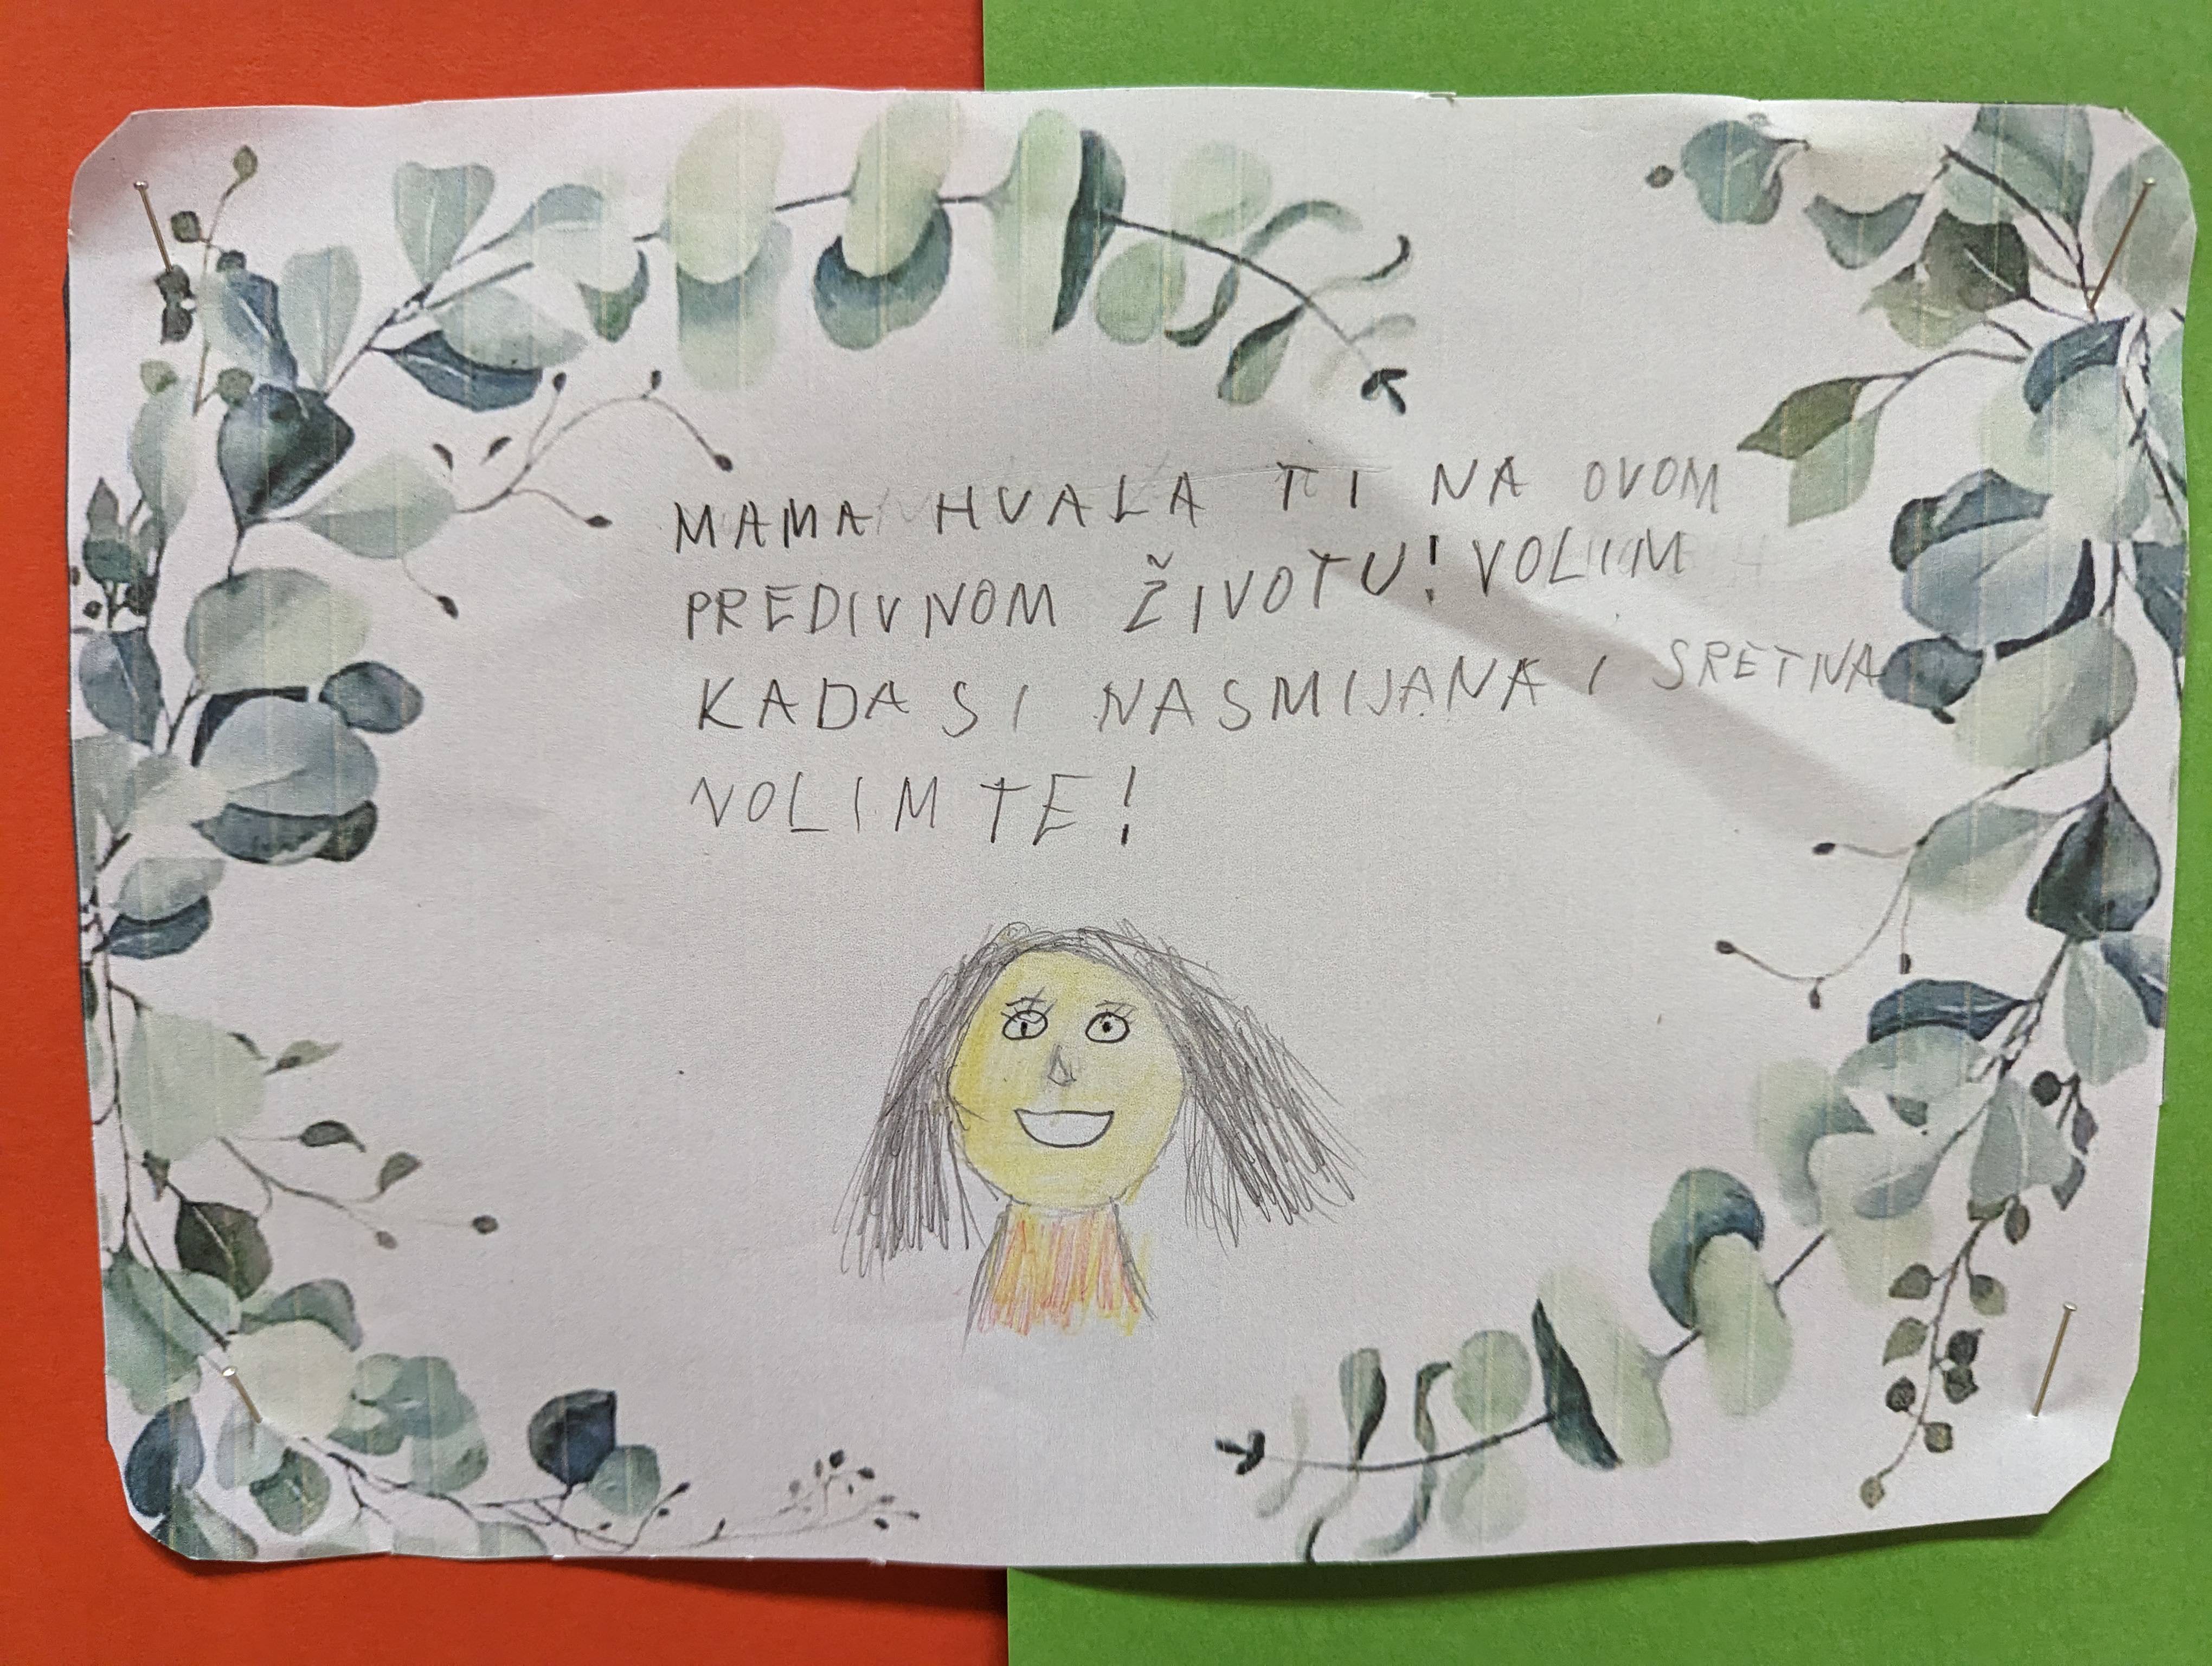 MAMA HVALA TI NA OVOM
PREDIVNOM ŽIVOTU! VOLIM
KADA SI NASMIJANA I SRETNA
VOLIM TE!